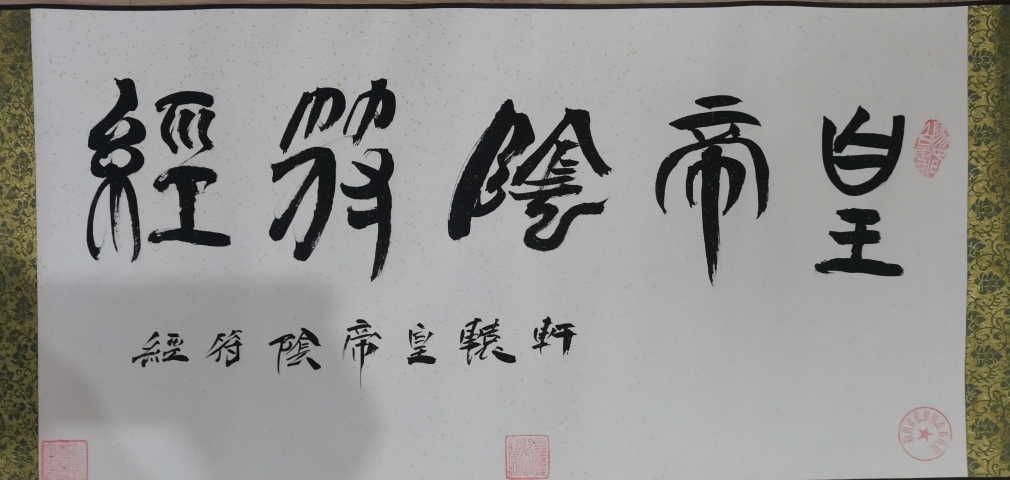 皇帝陰符經
軒轅皇帝陰符經